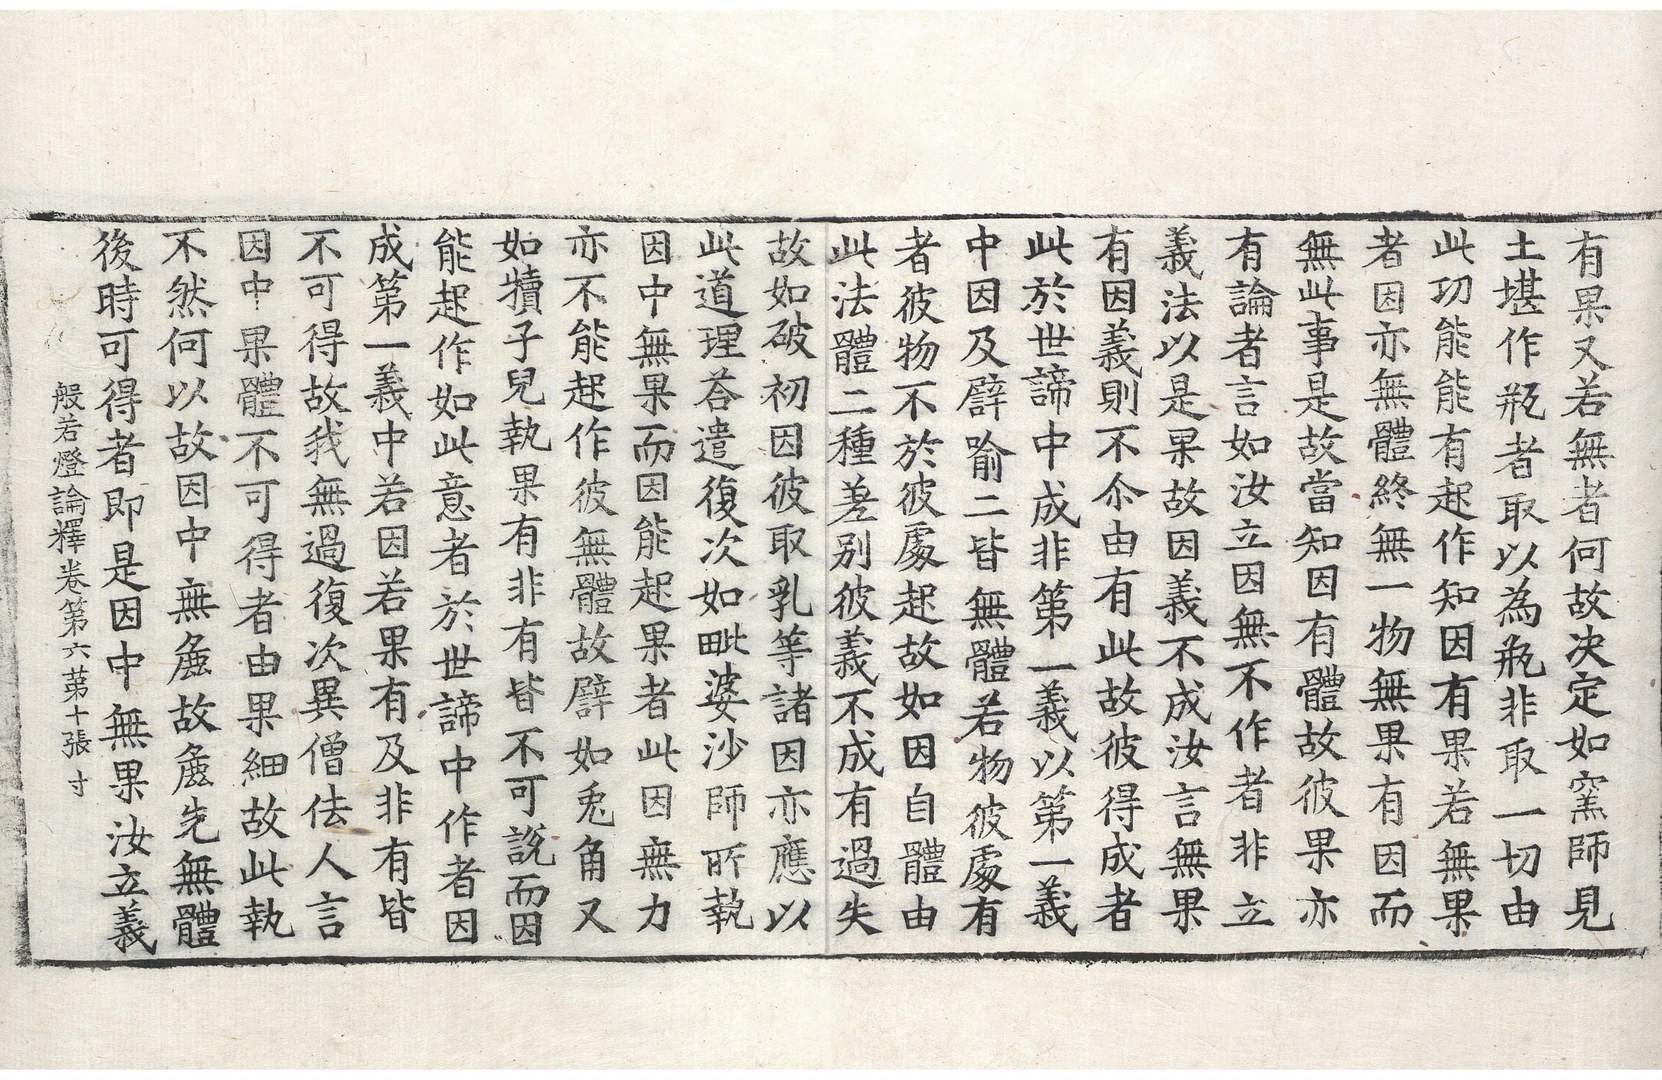 有果又若無者何故決定如窯師見
土堪作瓶者取以為瓶非取一切由
此功能能有起作知因有果若無果
者因亦無體終無一物無果有因而
無此事是故當知因有體故彼果亦
有論者言如汝立因無不作者非立
義法以是果故因義不成汝言無果
有因義則不尒由有此故彼得成者
此於世諦中成非第一義以第一義
中因及譬喻二皆無體若物彼處有
者彼物不於彼處起故如因自體由
此法體二種差別彼義不成有過失
故如破初因彼取乳等諸因亦應以
此道理荅遣復次如毗婆沙師所執
因中無果而因能起果者此因無力
亦不能起作彼無體故譬如兎角又
如犢子兒執果有非有皆不可說而因
能起作如此意者於世諦中作者因
成第一義中若因若果有及非有皆
不可得故我無過復次異僧佉人言
因中果體不可得者由果細故此執
不然何以故因中無麁故麁先無體
後時可得者即是因中無果汝立義
般若燈論釋卷第六 苐十張 寸